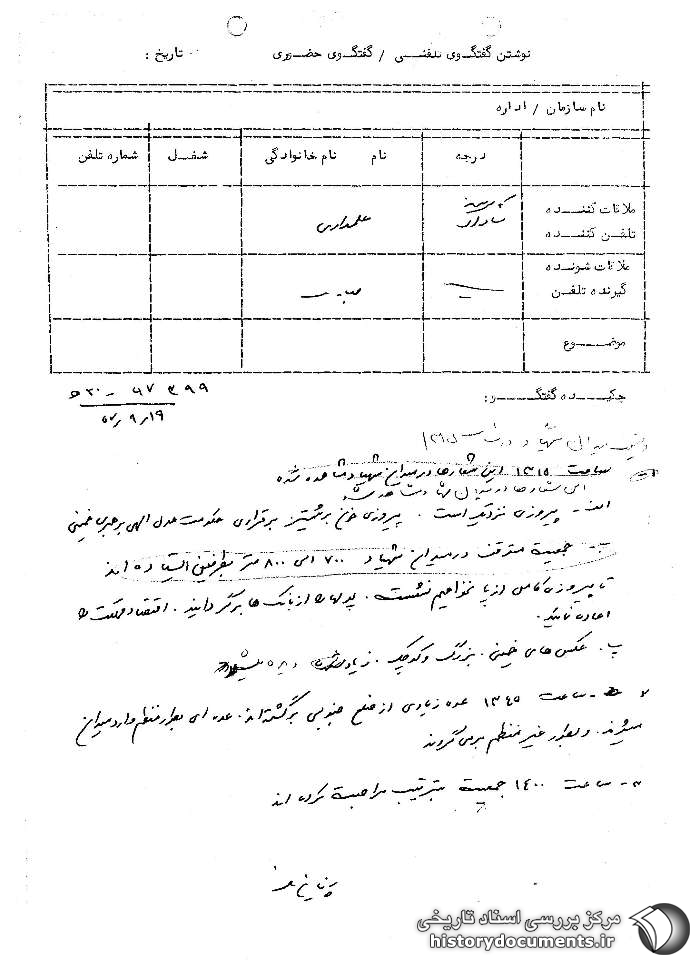 نوشتن گفتگوی تلفنی / گفتگوی حضوری تاریخ :
نام سازمان / اداره
درجه نام نام خانوادگی شغل شماره تلفن
ملاقات کننده
تلفن کننده علمداری
ملاقات شونده
گیرنده تلفن
موضوع
چکیده گفتگو :
۱۹ر۹ر۵۷
ساعت ۱۳۱۵ این شعارها در میدان شهیاد مشاهده شده
الف - پیروزی نزدیک است . پیروزی خون بر شمشیر برقراری حکومت عدل الهی برهبری خمینی
ب - جمعیت متوقف در میدان شهیاد ۷۰۰ الی ۸۰۰ متر بطرفین ایستاده اند
تا پیروزی کامل از پا نخواهیم نشست . پولها را از بانک ها برگردانید . اقتصاد مملکت
اعاده نمائید .
پ . عکس های خمینی . بزرگ و کوچک . زیاد دیده میشود
۲ - ساعت ۱۳۴۵ عده زیادی از ضلع جنوبی برگشته اند . عده ای بطور منظم وارد میدان
میشوند . و بطور غیر منظم برمی گردند
۳ - ساعت ۱۴۰۰ جمعیت بترتیب مراجعت کرده اند
مرکز بررسی اسناد تاریخی
historydocuments.ir